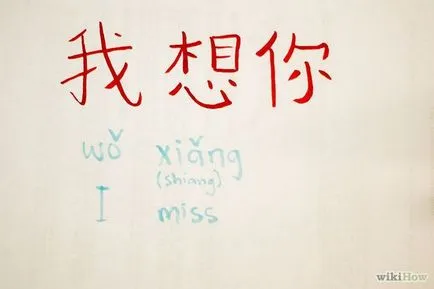 我想你
wǒ xiǎng
(shiang)
I miss
wikiHow